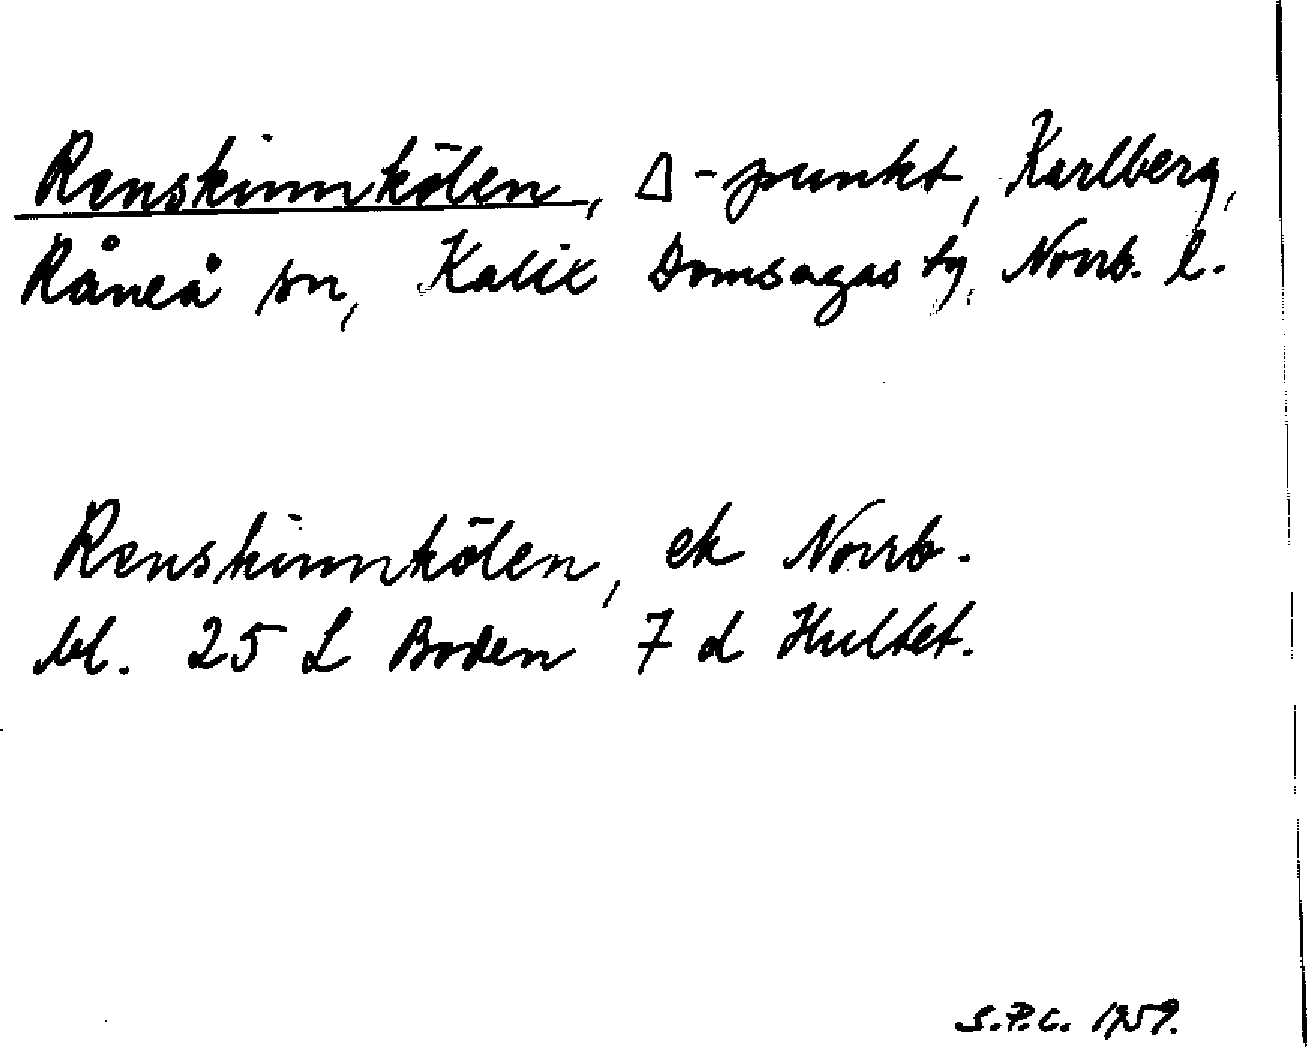 Renskinnkölen, Δ-punkt, Karlberg,
Råneå sn, Kalix Domsagas tg, Norrb. l.
Renskinnkölen, ek Norrb.
bl. 25 L Boden 7 d Hultet.
S.P.C. 1959.